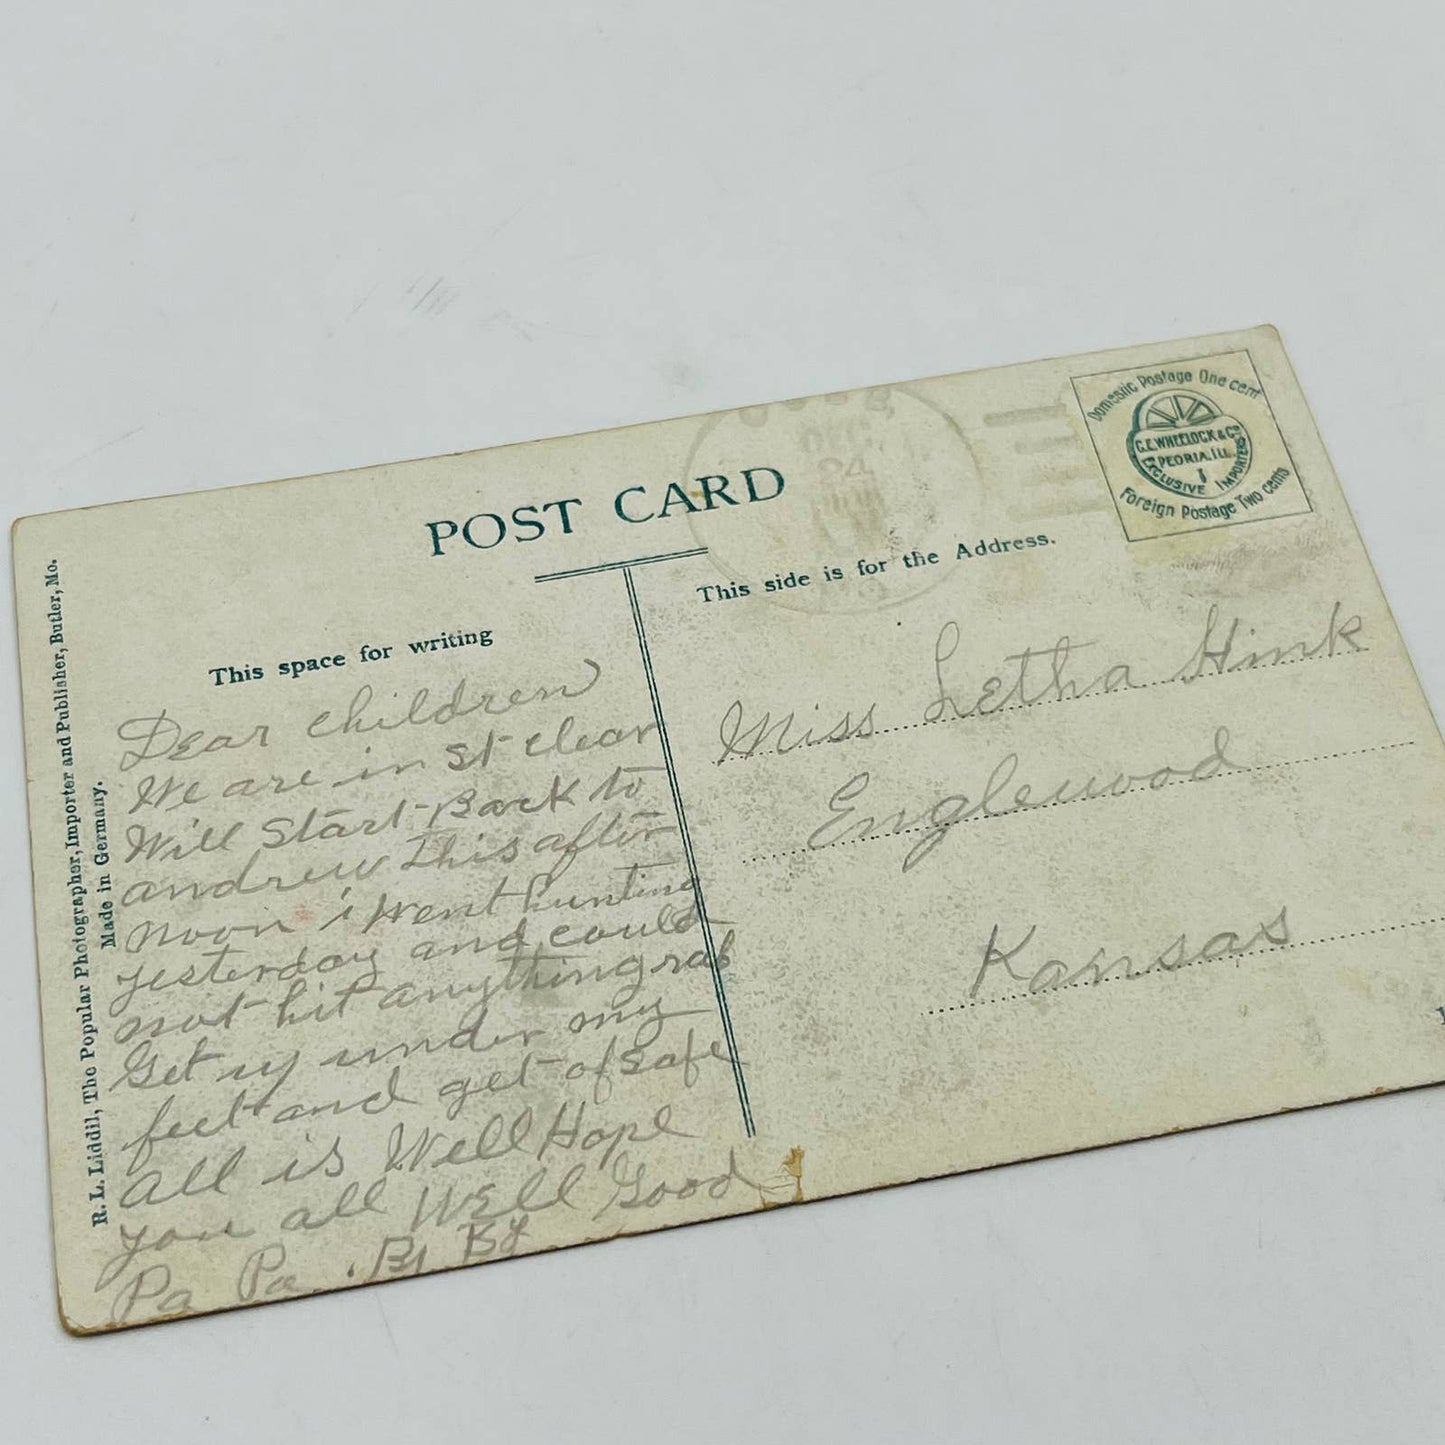 POST CARD
This space for writing
This side is for the Address.
Domestic Postage One cent
C.E.WHEELOCK & Co
PEORIA.ILL.
EXCLUSIVE IMPORTERS
Foreign Postage Two cents
DEC
24
R. L. Liddil, The Popular Photographer, Importer and Publisher, Butler, Mo.
Made in Germany.
Dear children
We are in St clear
Will Start Back to
andrew this after
noon i went hunting
yesterday and could
not hit anything rab
Get up under my
feet and get of safe
all is Well Hope
you all Well Good
By By
Pa Pa.
Miss Letha Hink
Englewood
Kansas